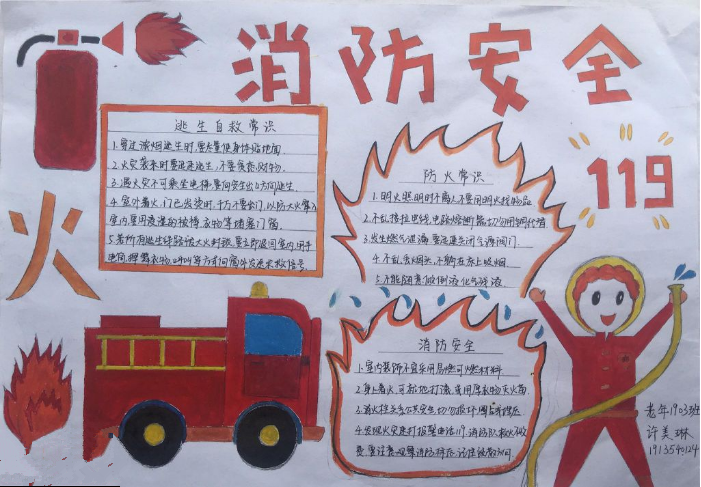 消防安全
119
火
逃生自救常识
1.穿过浓烟逃生时,要尽量使身体贴地面
2.火灾袭来时要迅速逃生,不要贪恋财物.
3.遇火灾不可乘坐电梯,要向安全出口方向逃生.
4.室外着火,门已发烫时,千万不要开门,以防火窜入
室内,要用浸湿的被褥、衣物等堵塞门窗.
5.若所有逃生线路被大火封锁,要立即退回室内,用手
电筒,挥舞衣物,呼叫等方式向窗外发送求救信号.
防火常识
1.明火照明时不离人,不要用明火找物品
2.不乱接拉电线,电路熔断器切勿用铜代替
3.发生燃气泄漏,要迅速关闭气源阀门.
4.不乱丢烟头,不躺在床上吸烟
5.不能随意倾倒液化气残液.
消防安全
1.室内装饰不宜采用易燃可燃材料
2.身上着火,可就地打滚,或用厚衣物灭火苗
4.发现火灾速打报警电话119,消防队救火不收
费
老年1903班
许美琳